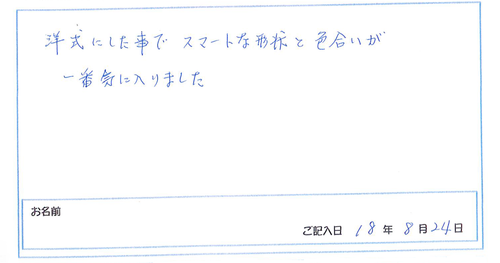 洋式にした事で スマートな形状と色合いが
一番気に入りました
お名前
ご記入日 18年 8月24日